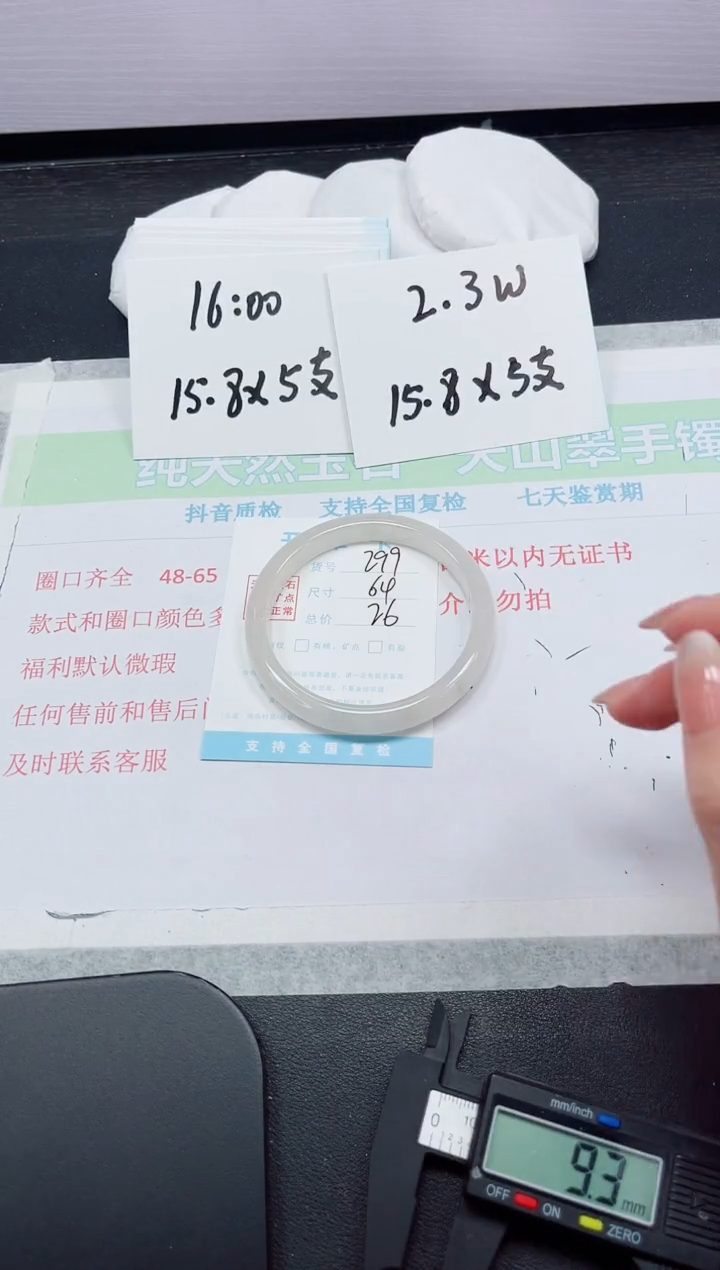 16:00
15.8×5支
2.3W
15.8×5支
纯天然宝石 天山翠手镯
抖音质检 支持全国复检 七天鉴赏期
圈口齐全 48-65
款式和圈口颜色多
福利默认微瑕
任何售前和售后问
及时联系客服
米以内无证书
介 勿拍
货号 299
尺寸 64
总价 26
石
矿点
正常
支持全国复检
mm/inch
0 10
9.3 mm
OFF ON ZERO